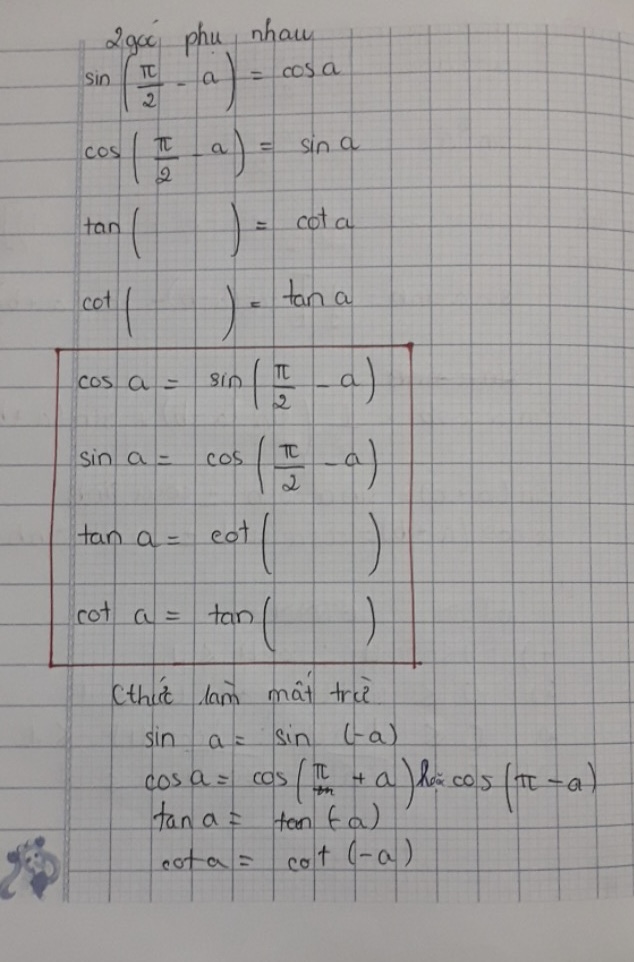 2 góc phụ nhau
sin(π/2 - a) = cos a
cos(π/2 - a) = sin a
tan( ) = cot a
cot( ) = tan a
cos a = sin(π/2 - a)
sin a = cos(π/2 - a)
tan a = cot( )
cot a = tan( )
Cthức làm mất trừ
sin a = sin (-a)
cos a = cos(π + a) hoặc cos(π - a)
tan a = tan(-a)
cot a = cot (-a)